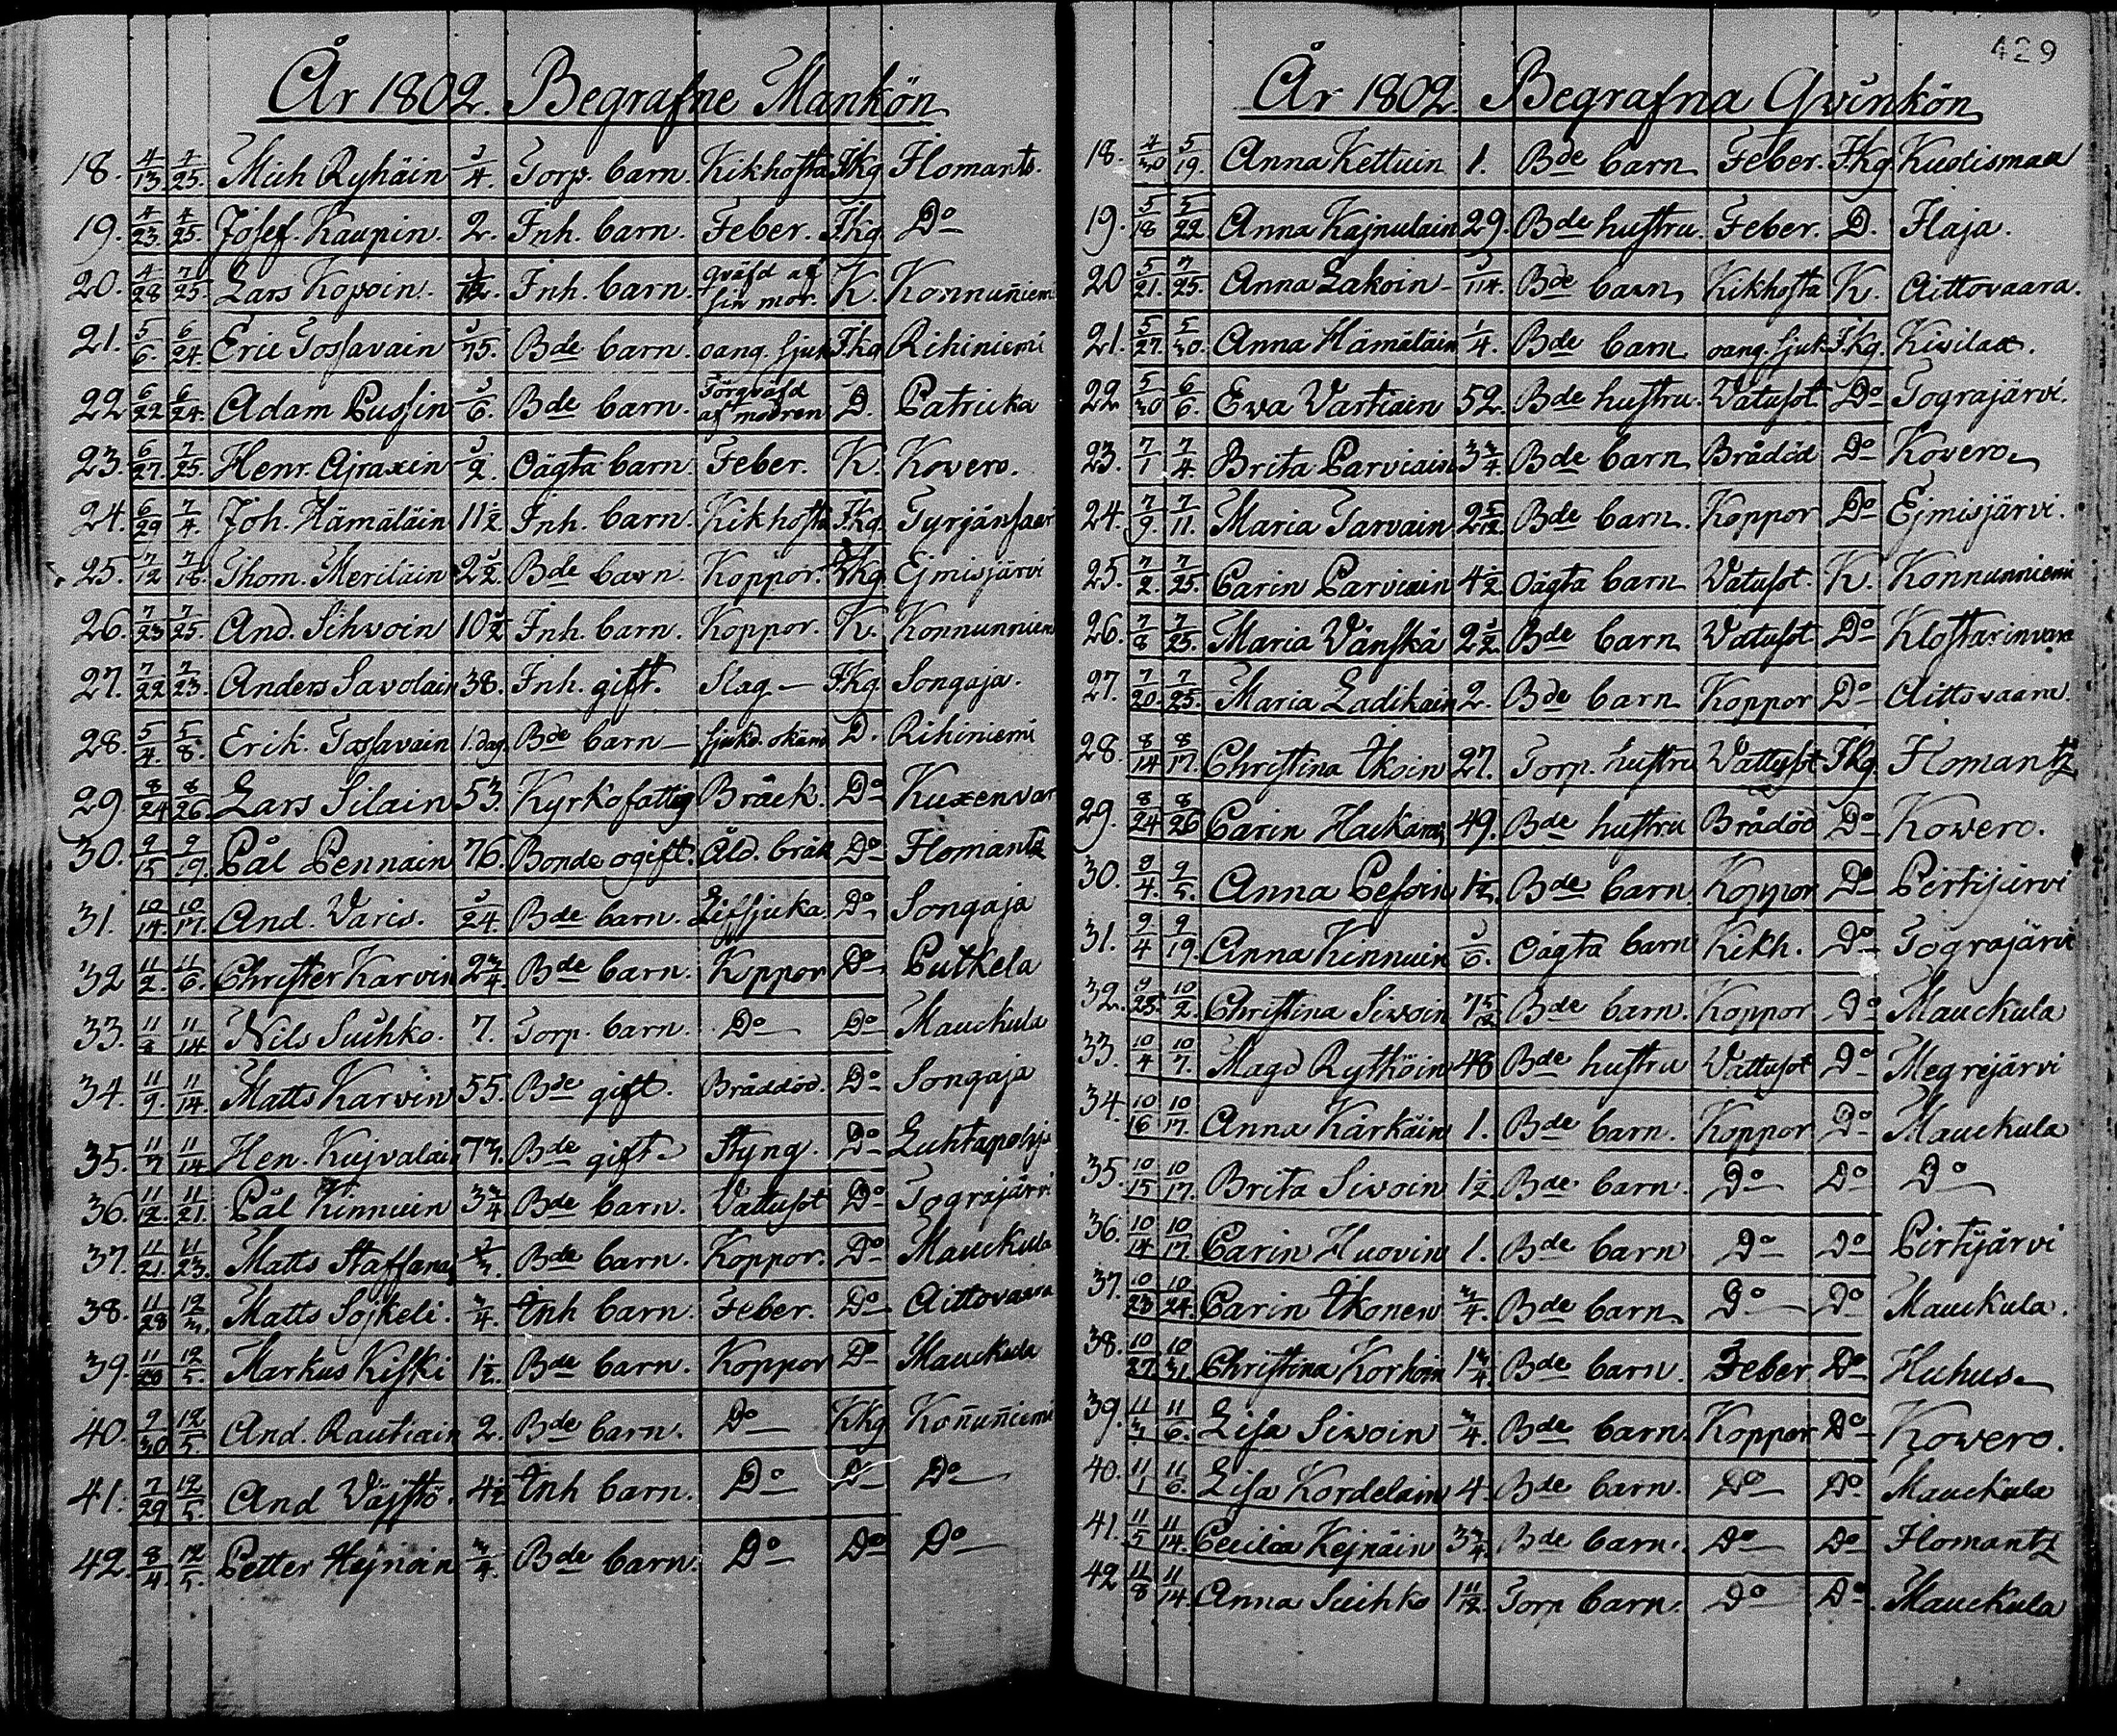 År 1802. Begrafne Mankön
18. 4/13 4/25. Mich Ryhäin 3/4. Torp. barn. Kikhosta Jkg Ilomants.
19. 4/23. 4/25. Josef Kaupin. 2. Inh. barn. Feber. Jkg Do
20. 4/28 7/25. Lars Kopoin. Inh. barn. qväfd af sin mor. K. Konnuñiemi
21. 5/6. 6/24. Eric Tossavain Bde barn. oang. sjuk Jkg Rihiniemi
22 6/22 6/24. Adam Pussin 1/6. Bde barn. Förqväfd af modren D. Patricka
23. 6/27. 7/25. Henr. Ajraxin 1/2. Oägta barn Feber. K. Kovero.
24. 6/29 7/4. Joh. Hämäläin 11 1/2 Inh. barn. Kikhosta Jkg.
25. 7/12 7/18. Thom. Meriläin 2 1/2. Bde barn. Koppor. Jkg Ejmisjärvi
26. 7/23 7/25. And. Sihvoin 10 1/2 Inh. barn. Koppor. K. Konnunniem
27. 7/22 7/23. Anders Savolain 38. Inh. gift. Slag — Jkg. Songaja.
28. 5/4. 5/8. Erik. Tossavain 1. dag. Bde barn — sjukd. okänd D. Rihiniemi
29 8/24 8/26. Lars Silain 53. Kyrkofattig Bråck. Do Kuxenvar
30. 9/15 9/19. Pål Pennain 76. Bonde ogift. Åld. bräk Do Ilomantz
31. 10/14. 10/17. And. Varis. 1/24. Bde barn. Lifsjuka Do Songaja
32 11/2. 11/6. Christer Karvin 2 3/4. Bde barn. Koppor Do Putkela
33. 11/8 11/14 Nils Suihko. 7. Torp. barn. Do Do Mauckula
34. 11/9. 11/14. Matts Karvin 55. Bde gift. Bråddöd. Do Songaja
35. 11/7 11/14 Hen. Kujvalai 73. Bde gift. Styng. Do Luhtapohja
36. 11/12. 11/21. Pål Kinnuin 3 3/4 Bde barn. Vattusot Do Tograjärvi
37. 11/21. 11/23. Matts Staffanas Bde barn. Koppor. Do Mauckula
38. 11/28 12/3. Matts Sojkeli. 3/4. Inh barn. Feber. Do Aittovaara
39. 11/30 12/5. Markus Kiski 1 1/2. Bde barn. Koppor Do Mauckula
40. 9/30 12/5. And. Rautiain 2. Bde barn. Do Kkg Koñuñiemi
41. 7/29 12/5. And Väjstö. 4 1/2 Inh barn. Do Do Do
42. 8/4. 12/5. Petter Hejnoin 3/4. Bde barn. Do Do Do
429
År 1802. Begrafna Qvinkön
18. 4/30 5/19. Anna Kettuin 1. Bde barn Feber. Jkg Kuolismaa
19. 5/18 5/22 Anna Kajnulain 29. Bde hustru Feber. D. Ilaja.
20 5/21. 7/25. Anna Lakoin Bde barn Kikhosta K. Aittovaara.
21. 5/27. 5/30. Anna Hämäläin 1/4. Bde barn oang. sjuk. Jkg. Kivilax.
22 5/30 6/6. Eva Vartiain 52. Bde hustru. Vatusot. Do Tograjärvi.
23. 7/1 7/4. Brita Parviain 3 3/4 Bde barn Brådöd Do Kovero
24. 7/9. 7/11. Maria Tarvain 2 5/12. Bde barn. Koppor Do Ejmisjärvi.
25. 7/2. 7/25. Carin Parviain 4 1/2. Oägta barn Vatusot. K. Konnunniemi
26. 7/8 7/25. Maria Vänskä 2 1/2. Bde barn Vatusot Do Klostarinvara
27. 7/20. 7/25. Maria Ladikain 2. Bde barn Koppor Do Aittovaara.
28. 8/14 8/17. Christina Ikoin 27. Torp. hustru Vattusot Jkg Ilomantz
29. 8/24 8/26 Carin Hackara 49. Bde hustru Brådöd Do Kovero.
30. 9/4. 9/5. Anna Pesoin 1 1/2. Bde barn Koppor Do Pirtijärvi
31. 9/4 9/19. Anna Kinnuin 1/6. Oägta barn Kikh. Do Tograjärvi
32. 9/25. 10/2. Christina Sivoin Bde barn. Koppor Do Mauckula
33. 10/4 10/7. Magd Rytköin 48 Bde hustru Vattusot Do Megrejärvi
34. 10/16 10/17. Anna Kärkäin 1. Bde barn. Koppor Do Mauckula
35. 10/15 10/17. Brita Sivoin 1 1/2. Bde barn. Do Do Do
36. 10/14 10/17. Carin Huovin 1. Bde barn Do Do Pirtijärvi
37. 10/23 10/24. Carin Ikonen 3/4. Bde barn Do Do Mauckula.
38. 10/27. 10/31. Christina Korhoin 1 3/4. Bde barn. Feber Do Huhus
39. 11/3 11/6. Lisa Sivoin 3/4. Bde barn. Koppor Do Kovero.
40. 11/1 11/6. Lisa Kordelain 4. Bde barn. Do Do Mauckula
41. 11/5 11/14. Cecilia Kejnäin 3 3/4. Bde barn. Do Do Ilomantz
42 11/8 11/14. Anna Suihko 1 11/12. Torp barn. Do Do. Mauckula